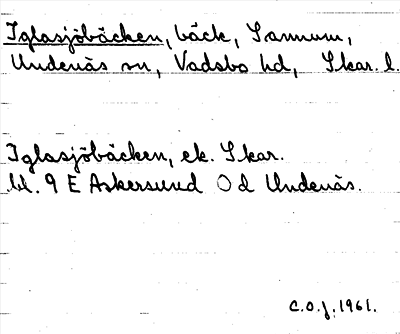 Iglasjöbäcken, bäck, Sannum,
Undenäs sn, Vadsbo hd, Skar. l.
Iglasjöbäcken, ek. Skar.
bl. 9 E Askersund Od Undenäs.
C.O.J. 1961.